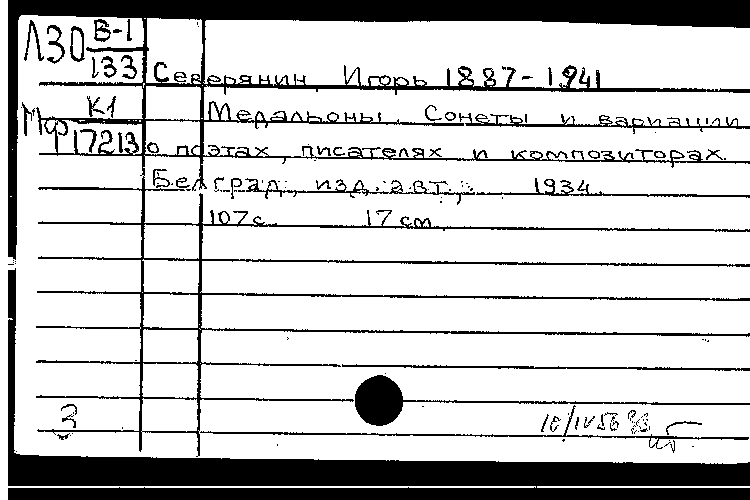 Л30 В-1
133
Северянин, Игорь 1887-1941
К1
Мф 17213
Медальоны. Сонеты и вариации
о поэтах, писателях и композиторах.
Белград, изд. авт., 1934.
107с. 17 см.
З
10/IV 56